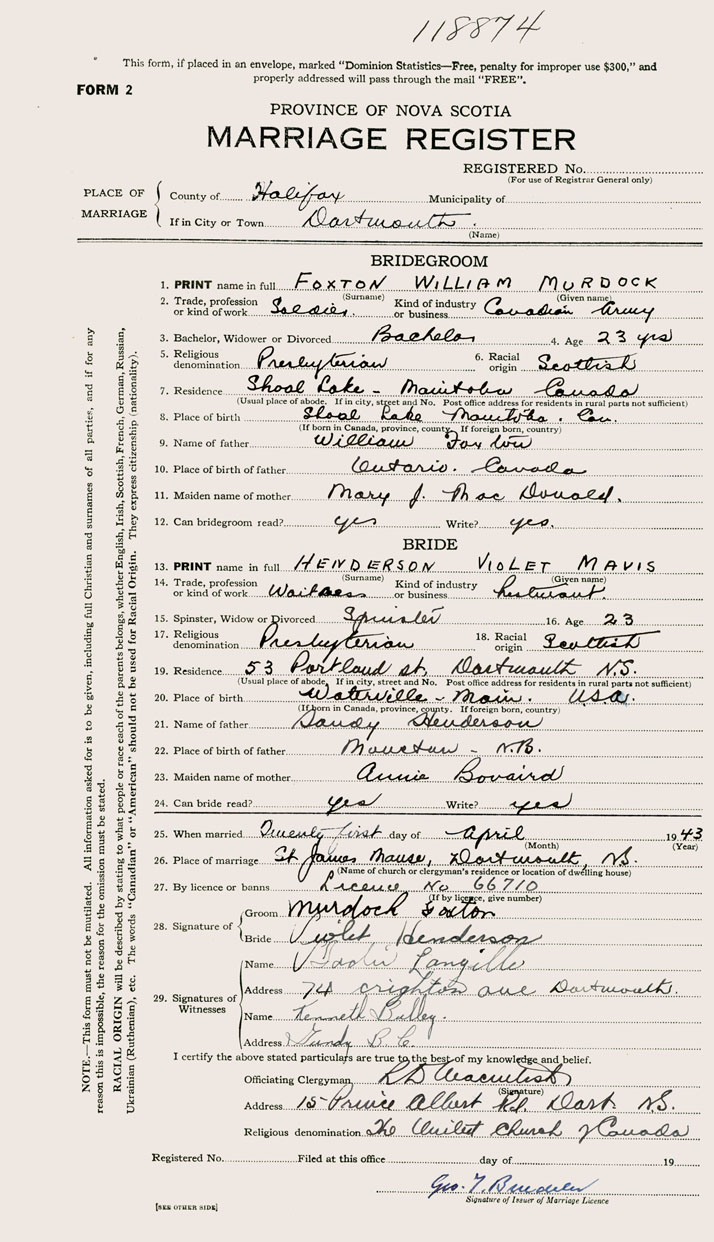 118874
This form, if placed in an envelope, marked "Dominion Statistics—Free, penalty for improper use $300," and
properly addressed will pass through the mail "FREE".
FORM 2
PROVINCE OF NOVA SCOTIA
MARRIAGE REGISTER
REGISTERED No.
(For use of Registrar General only)
PLACE OF MARRIAGE
County of Halifax Municipality of
If in City or Town Dartmouth.
(Name)
BRIDEGROOM
1. PRINT name in full FOXTON WILLIAM MURDOCK
(Surname) (Given name)
2. Trade, profession or kind of work Soldier. Kind of industry or business Canadian Army
3. Bachelor, Widower or Divorced Bachelor 4. Age 23 yrs
5. Religious denomination Presbyterian 6. Racial origin Scottish
7. Residence Shoal Lake - Manitoba Canada
(Usual place of abode. If in city, street and No. Post office address for residents in rural parts not sufficient)
8. Place of birth Shoal Lake Manitoba. Can.
(If born in Canada, province, county. If foreign born, country)
9. Name of father William Foxton
10. Place of birth of father Ontario. Canada
11. Maiden name of mother Mary J. Mac Donald.
12. Can bridegroom read? yes Write? yes.
BRIDE
13. PRINT name in full HENDERSON VIOLET MAVIS
(Surname) (Given name)
14. Trade, profession or kind of work Waitress Kind of industry or business
15. Spinster, Widow or Divorced Spinster 16. Age 23
17. Religious denomination Presbyterian 18. Racial origin Scottish
19. Residence 53 Portland st. Dartmouth N.S.
(Usual place of abode. If in city, street and No. Post office address for residents in rural parts not sufficient)
20. Place of birth Watterville - Main. U.S.A.
(If born in Canada, province, county. If foreign born, country)
21. Name of father Sandy Henderson
22. Place of birth of father Moncton - N.B.
23. Maiden name of mother Annie Bovaird
24. Can bride read? yes Write? yes
25. When married Twenty first day of April 1943
(Month) (Year)
26. Place of marriage St James Manse, Dartmouth, N.S.
(Name of church or clergyman's residence or location of dwelling house)
27. By licence or banns Licence No 66710
(If by licence, give number)
28. Signature of
Groom Murdock Foxton
Bride Violet Henderson
29. Signatures of Witnesses
Name Langille
Address 74 crighton ave Dartmouth.
Name Kenneth
Address B.C.
I certify the above stated particulars are true to the best of my knowledge and belief.
Officiating Clergyman
(Signature)
Address 15 Prince Albert Rd. Dart. N.S.
Religious denomination The United Church of Canada
Registered No. Filed at this office day of 19
Geo.
Signature of Issuer of Marriage Licence
[SEE OTHER SIDE]
NOTE.—This form must not be mutilated. All information asked for is to be given, including full Christian and surnames of all parties, and if for any
reason this is impossible, the reason for the omission must be stated.
RACIAL ORIGIN will be described by stating to what people or race each of the parents belongs, whether English, Irish, Scottish, French, German, Russian,
Ukrainian (Ruthenian), etc. The words "Canadian" or "American" should not be used for Racial Origin. They express citizenship (nationality).